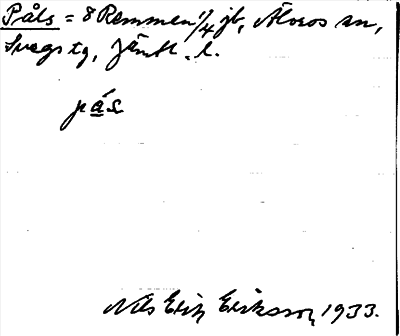 Påls = 8 Remmen 1/4 jb, Älvros sn,
Svegs tg, Jämtl. l.
pás
Nils Erik Eriksson, 1933.